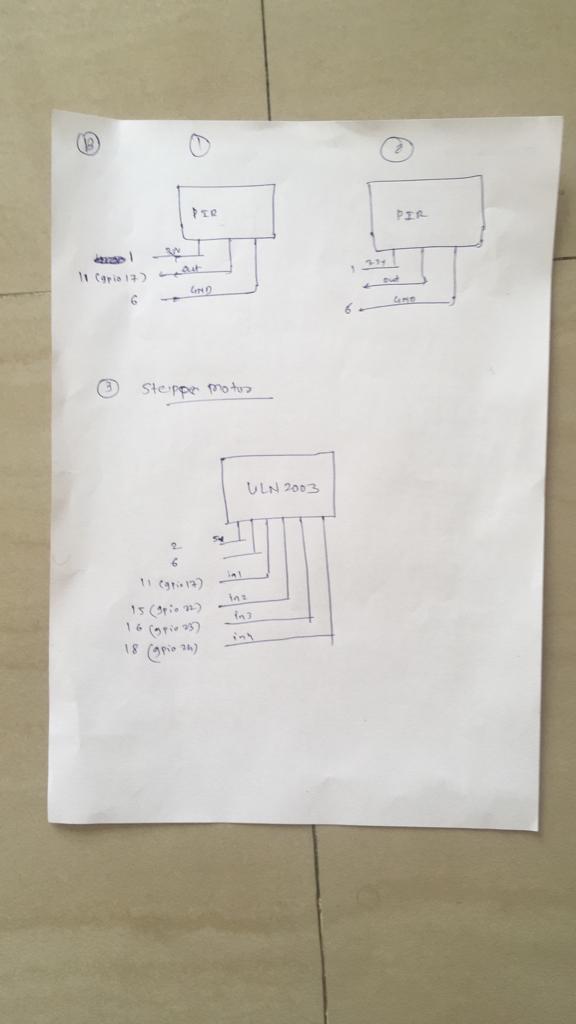 B 1 2
PIR
1 3.3V
11 (gpio 17) out
6 GND
PIR
1 3.3V
out
6 GND
3 Stepper Motor
ULN 2003
2 5V
6
11 (gpio 17) in1
15 (gpio 22) in2
16 (gpio 23) in3
18 (gpio 24) in4